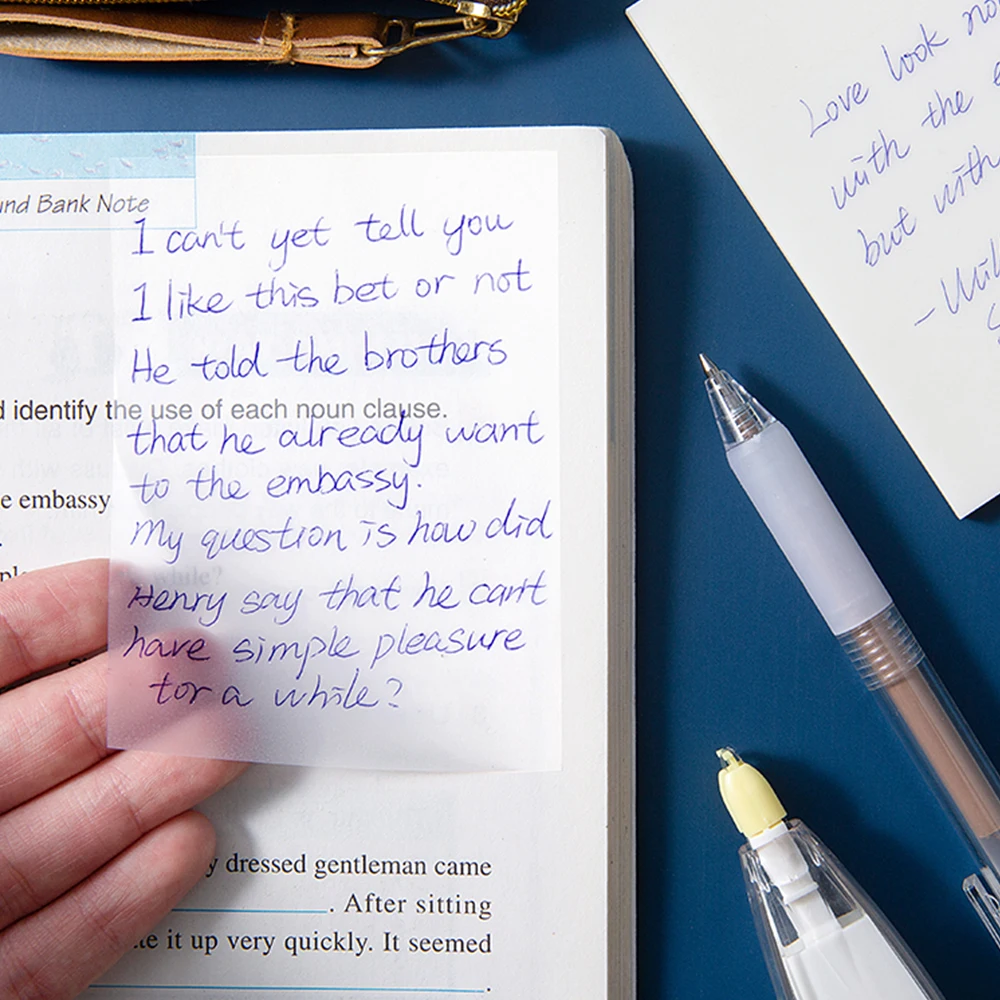 und Bank Note
I can't yet tell you
I like this bet or not
He told the brothers
identify the use of each noun clause.
that he already want
e embassy
to the embassy.
My question is how did
while?
Henry say that he can't
have simple pleasure
for a while?
dressed gentleman came
. After sitting
it up very quickly. It seemed
.
Love look
with the
but with